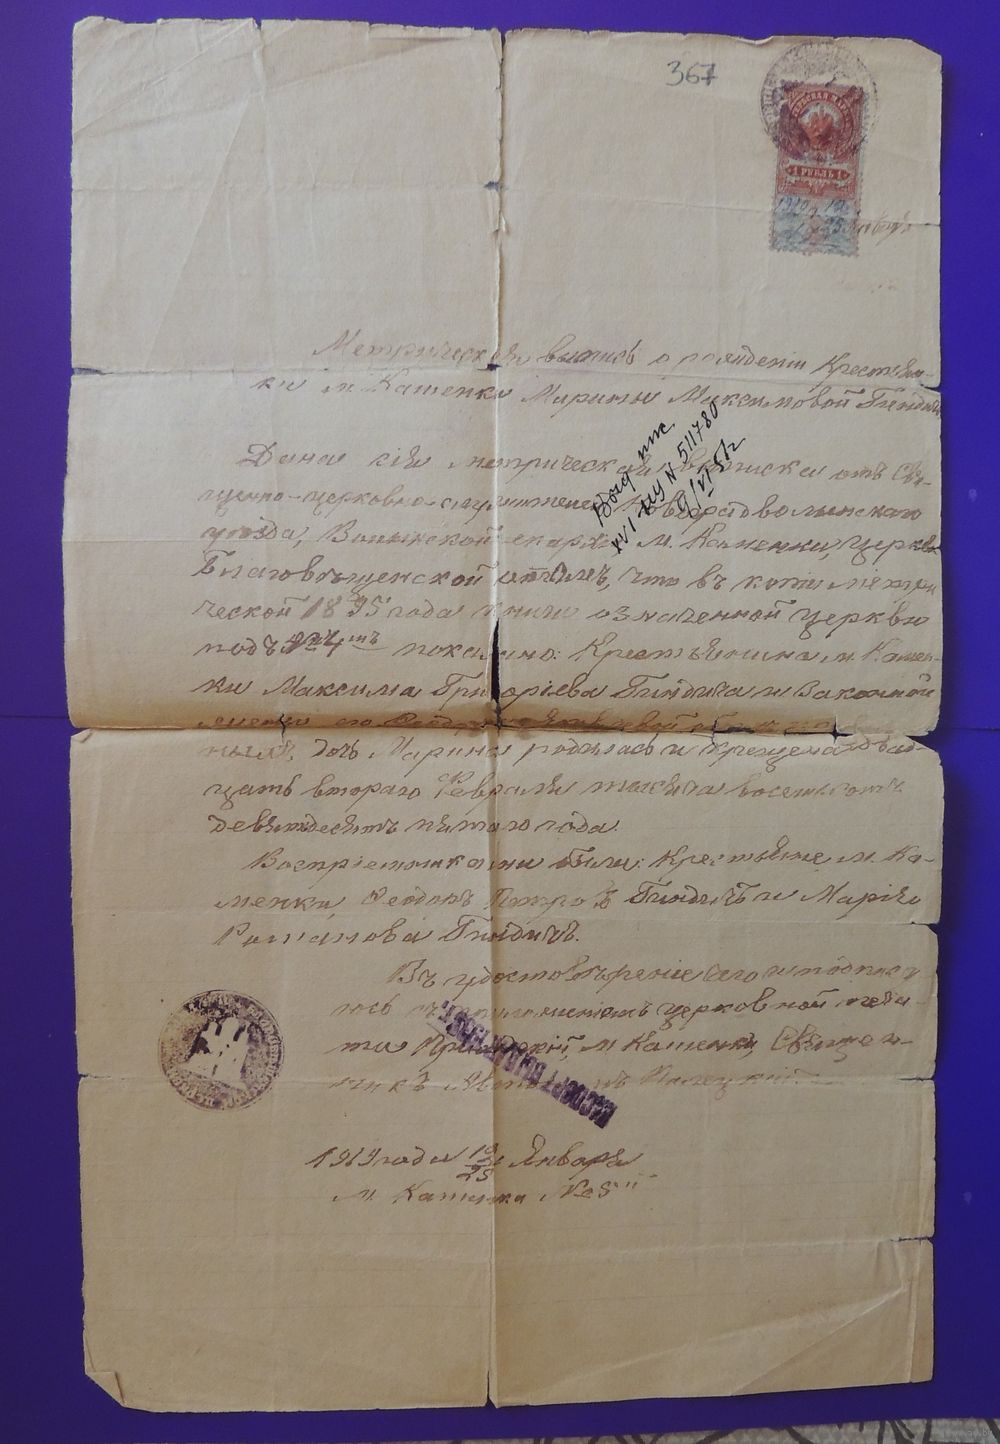 367
1 РУБЛЬ 1
Метрическая выпись о рождении Крестьян-
ки м. Каменки Марины Максимовой Гиндичъ
Дана сія метрическая выписка отъ Свя-
щенно-церковно-служителей
уѣзда, Волынской епархіи м. Каменки, Церкви
Благовѣщенской въ томъ, что въ копіи метри
ческой 1895 года книги означенной церкви
подъ № 4мъ показано: Крестьянина м. Камен-
ки Максима Григоріева Гиндича и законной
жены его
ныхъ, дочь Марина родилась и крещена двад-
цать втораго Февраля тысяча восемьсотъ
девяноста пятаго года.
Воспріемниками были: Крестьяне м. Ка-
менки, Феодоръ Петровъ Гиндичъ и Марія
Романова Гиндичъ.
Въ удостовѣреніе сего и подпису
юсь съ приложеніемъ церковной печа-
ти м. Каменки, Священ-
никъ
1919 года 10/25 Января
м. Каменка № 5
Выд. пас
XVI шу N 511780
9/VI 51
ПАСПОРТ ВЫДАН